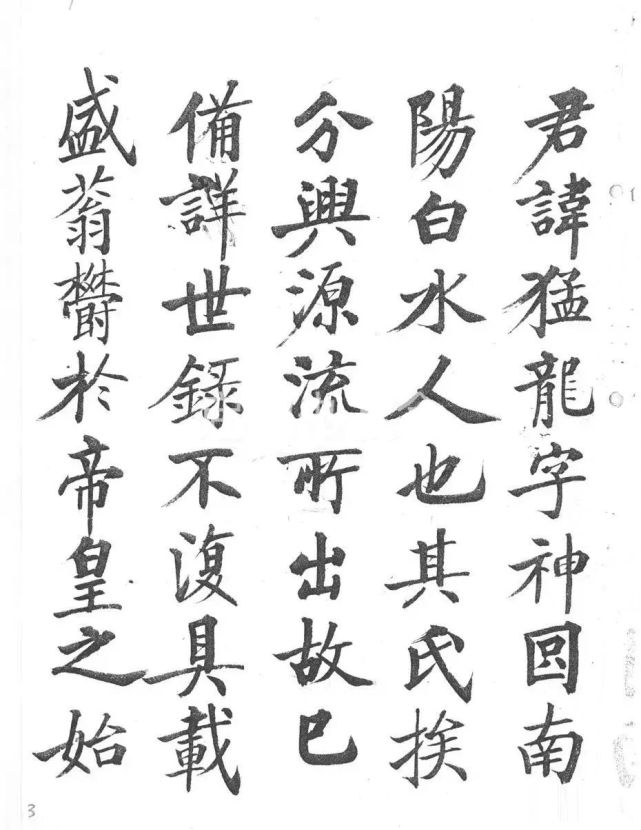 君諱猛龍字神囧南
陽白水人也其氏挨
分興源流所出故已
備詳世録不復具載
盛蓊欝於帝皇之始
3